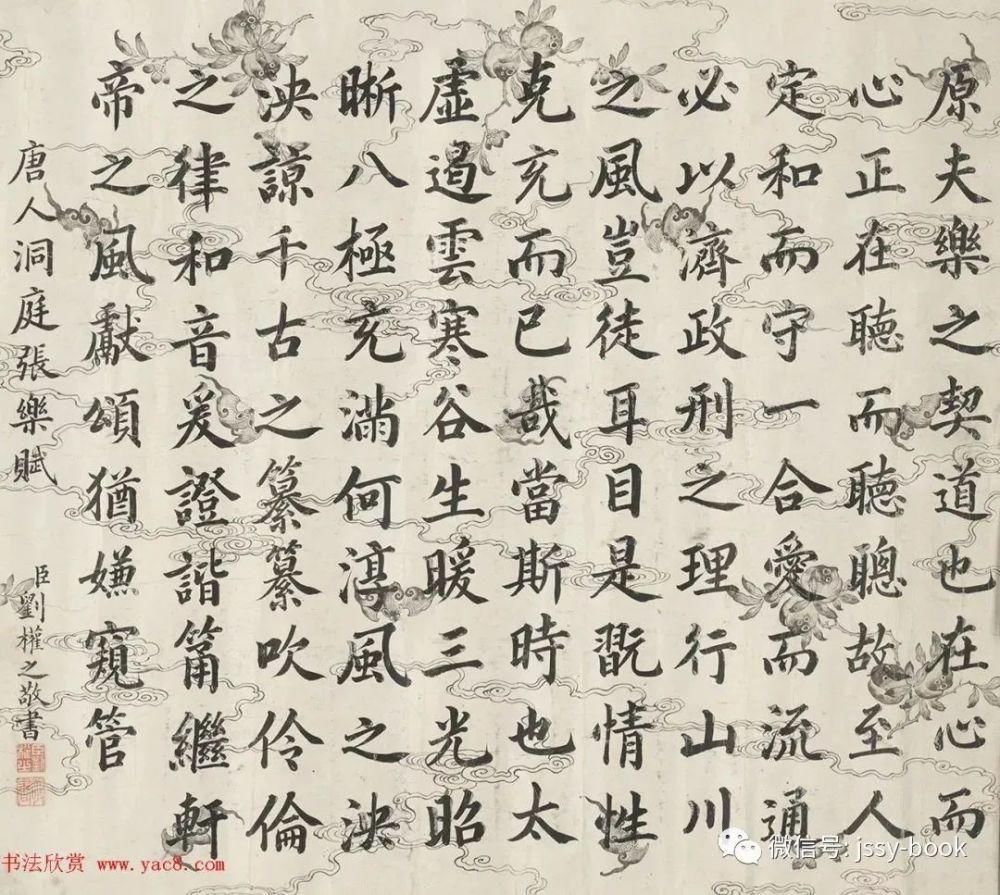 原夫樂之契道也在心而
心正在聽而聽聰故至人
定和而守一合愛而流通
必以濟政刑之理行山川
之風豈徒耳目是翫情性
克充而已哉當斯時也太
虛遏雲寒谷生暖三光昭
晰八極充滿何淳風之泱
泱諒千古之纂纂吹伶倫
之律和音爰證諧筩繼軒
帝之風獻頌猶嫌窺管
唐人洞庭張樂賦
臣劉權之敬書
书法欣赏 www.yac8.com
微信号: jssy-book